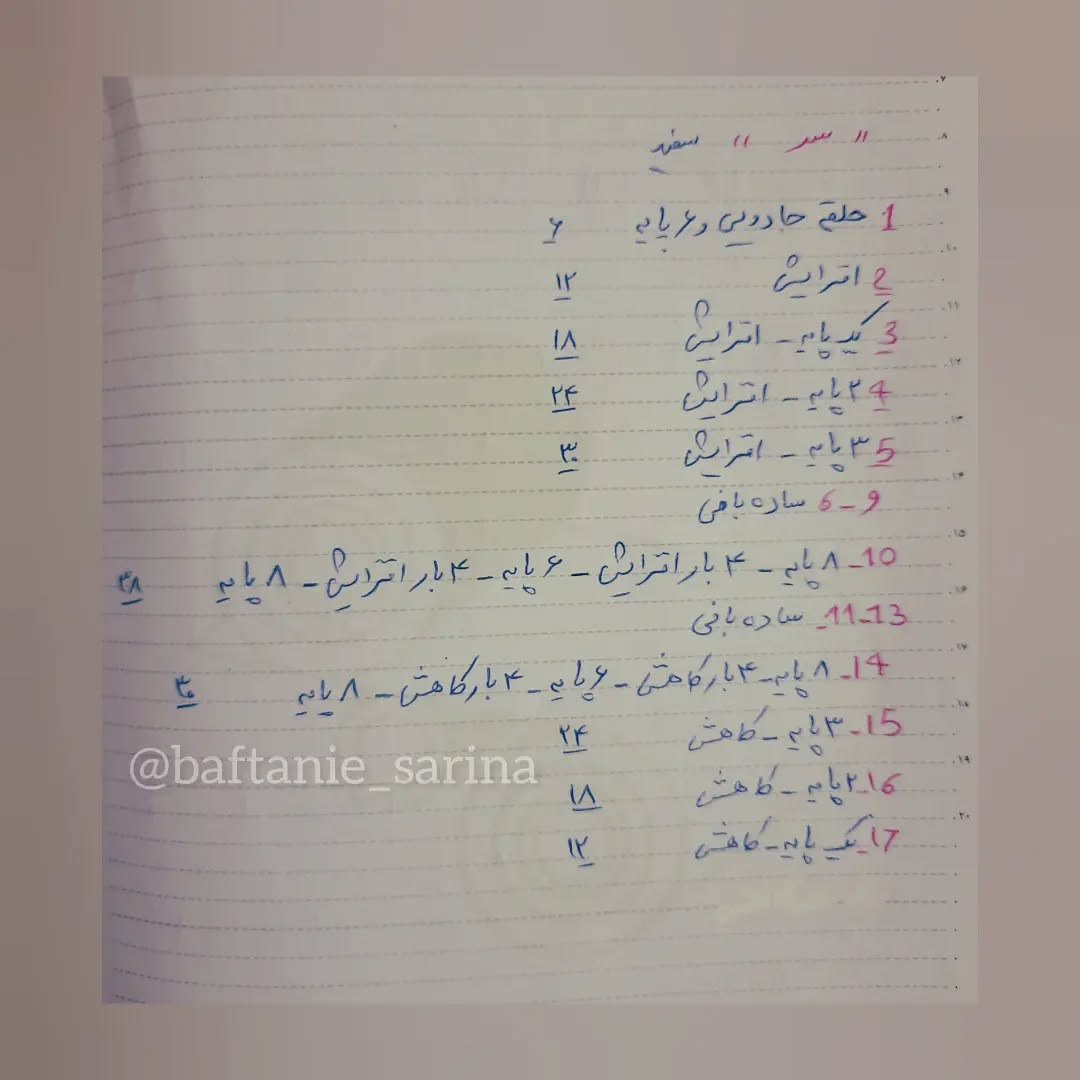 « سر » سفید
1 حلقه جادویی و ۶ پایه ۶
2 افزایش ۱۲
3 یک پایه - افزایش ۱۸
4 ۲ پایه - افزایش ۲۴
5 ۳ پایه - افزایش ۳۰
6 - 9 ساده بافی
10 - ۸ پایه - ۴ بار افزایش - ۶ پایه - ۴ بار افزایش - ۸ پایه ۳۸
11-13 - ساده بافی
14 - ۸ پایه - ۴ بار کاهش - ۶ پایه - ۴ بار کاهش - ۸ پایه ۳۰
15 - ۳ پایه - کاهش ۲۴
@baftanie_sarina
16 - ۲ پایه - کاهش ۱۸
17 - یک پایه - کاهش ۱۲